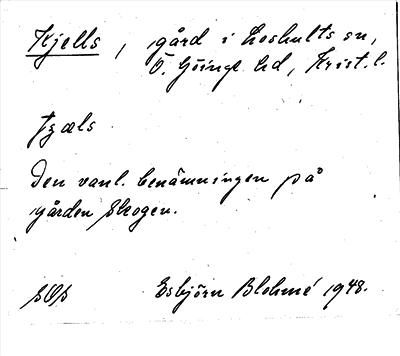 Kjells, gård i Loshults sn,
Ö. Göinge hd, Krist. l.
tjæls.
Den vanl. benämningen på
gården Skogen.
SOS Esbjörn Blohmé 1948.